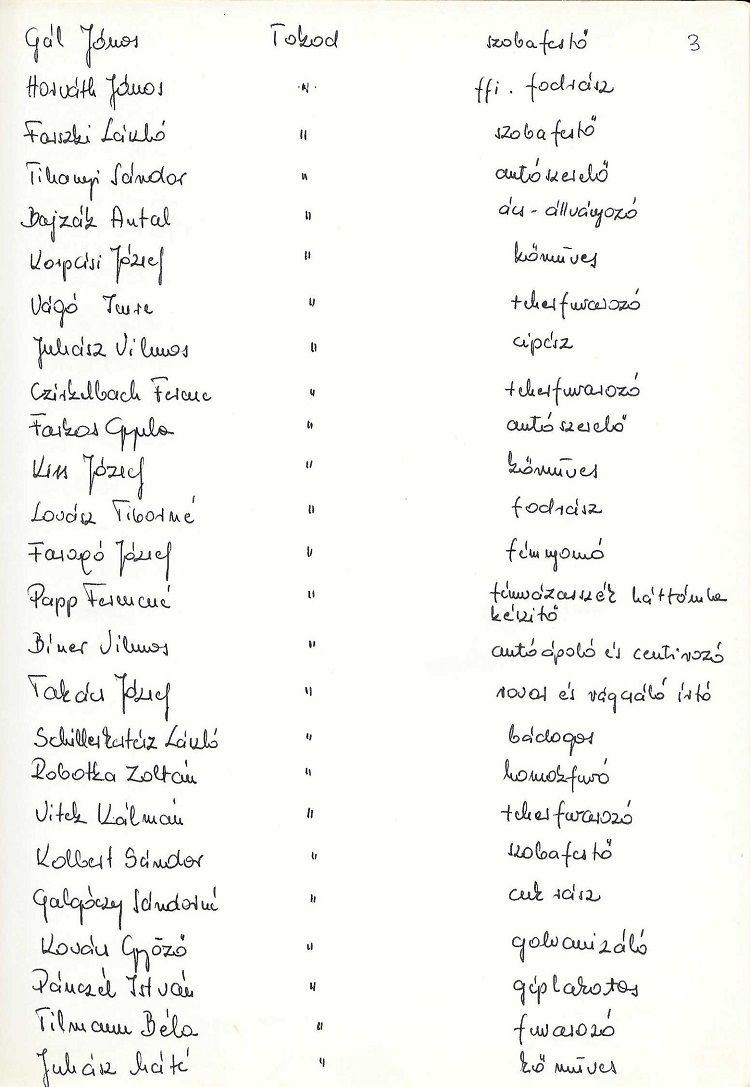 Gál János Tokod szobafestő 3
Horváth János " ffi. fodrász
Farszki László " szobafestő
Tihanyi Sándor " autószerelő
Bajzák Antal " ács-állványozó
Korpási József " kőműves
Vágó Imre " teherfuvarozó
Juhász Vilmos " cipész
Czirkelbach Ferenc " teherfuvarozó
Farkas Gyula " autószerelő
Kiss József " kőműves
Lovász Tiborné " fodrász
Faragó József " fémnyomó
Papp Ferencné " fémvázasszék háttámla
készitő
Biner Vilmos " autóápoló és centirozó
Takács József " rovar és rágcsáló írtó
László " bádogos
Robotka Zoltán " homokfuvó
Vitek Kálmán " teherfuvarozó
Kolbert Sándor " szobafestő
Galgóczy Sándorné " cukrász
Kovács Győző " galvanizáló
Pánczél István " géplakatos
Tilmann Béla " fuvarozó
Juhász Máté " kőműves